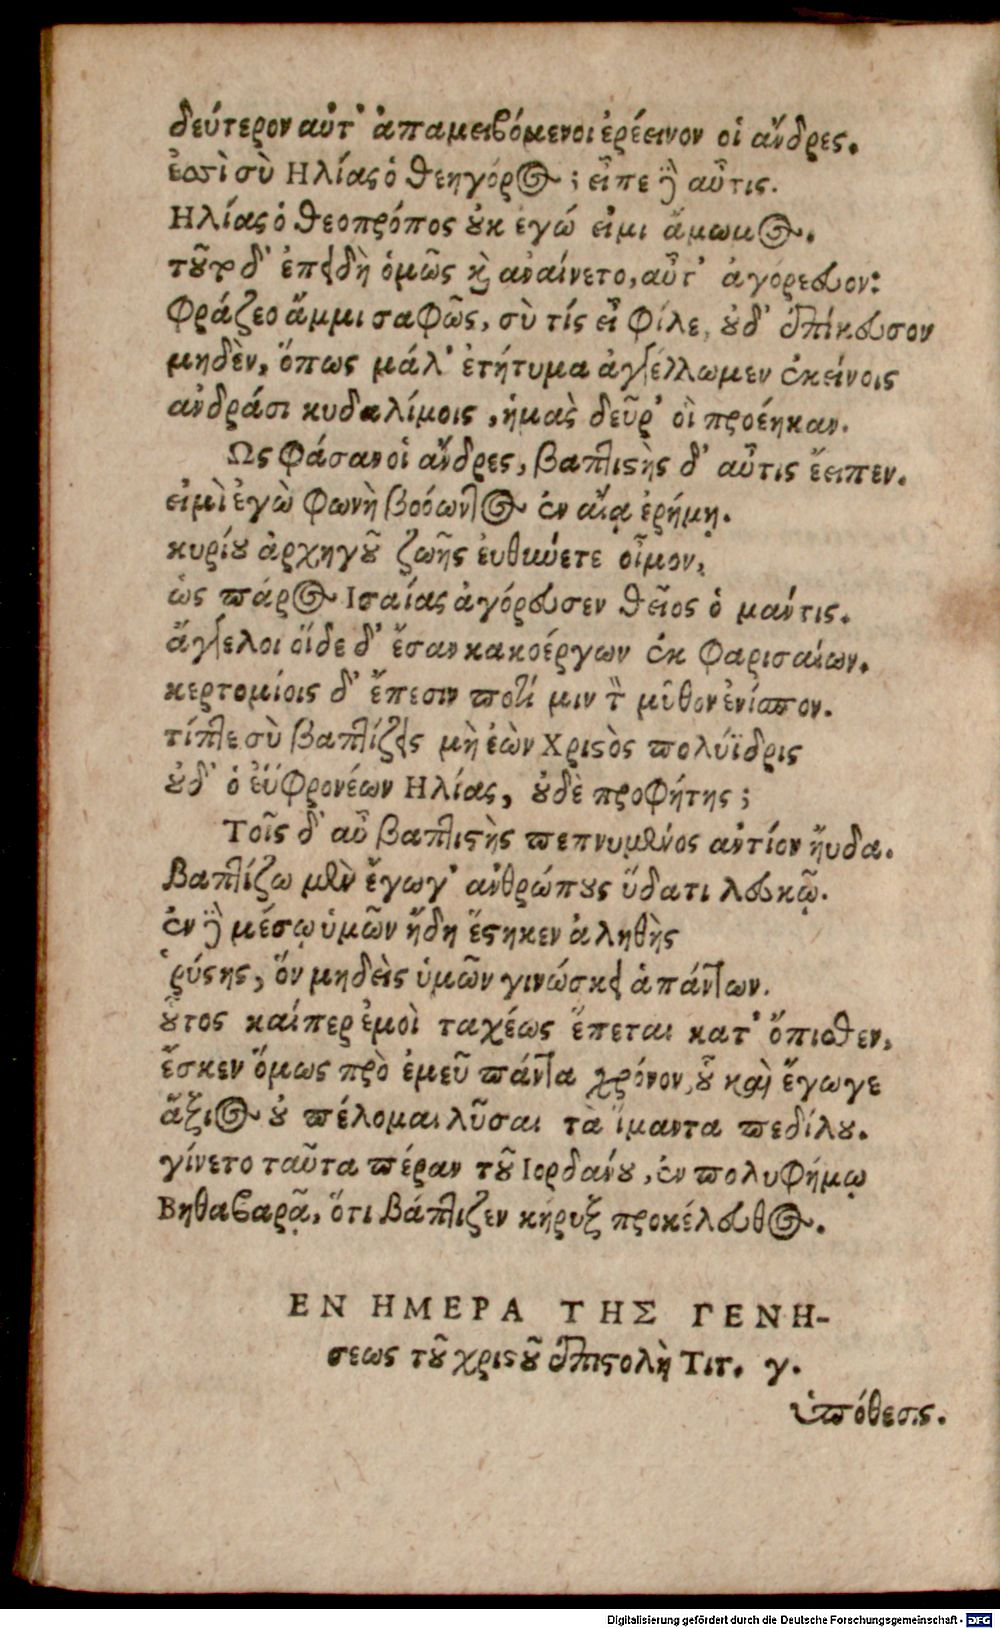 δεύτερον αὖτ' ἀπαμειβόμενοι ἐρέεινον οἱ ἄνδρες.
ἐσσὶ σὺ Ηλίας ὁ θεηγόρος; εἶπε γ̈ αὖτις.
Ηλίας ὁ θεοπρόπος οὐκ ἐγώ εἰμι ἄμωμος.
τοῦτο δ' ἐπειδὴ ὁμῶς καὶ ἀναίνετο, αὖτ' ἀγόρευον:
Φράζεο ἄμμι σαφῶς, σὺ τίς εἶ φίλε, οὐδ' ἐπίκευσον
μηδὲν, ὅπως μάλ' ἐτήτυμα ἀγγέλλωμεν ἐκείνοις
ἀνδράσι κυδαλίμοις, ἡμας δεῦρ' οἳ προέηκαν.
Ως φάσαν οἱ ἄνδρες, βαπτιστὴς δ' αὖτις ἔειπεν.
εἰμὶ ἐγὼ φωνὴ βοόωντος ἐν αἴᾳ ἐρήμῃ.
κυρίου ἀρχηγοῦ ζωῆς εὐθύνετε οἶμον,
ὡς πάρος Ισαίας ἀγόρευσεν θεῖος ὁ μάντις.
ἄγγελοι οἵδε δ' ἔσαν κακοέργων ἐκ Φαρισαίων.
κερτομίοις δ' ἔπεσιν ποτί μιν τὸν μῦθον ἐνίσπον.
τίπτε σὺ βαπτίζεις μὴ ἐὼν Χριστὸς πολύϊδρις
οὐδ' ὁ ἐΰφρονέων Ηλίας, οὐδὲ προφήτης;
Τοῖς δ' αὖ βαπτιστὴς πεπνυμένος ἀντίον ηὔδα.
Βαπτίζω μὲν ἔγωγ' ἀνθρώπους ὕδατι λευκῷ.
ἐν γ̈ μέσῳ ὑμῶν ἤδη ἕστηκεν ἀληθὴς
ῥύστης, ὃν μηδεὶς ὑμῶν γινώσκει ἁπάντων.
οὗτος καίπερ ἐμοὶ ταχέως ἕπεται κατ' ὄπισθεν,
ἔσκεν ὅμως πρὸ ἐμεῦ πάντα χρόνον, οὗ καὶ ἔγωγε
ἄξιος οὐ πέλομαι λῦσαι τὰ ἵμαντα πεδίλου.
γίνετο ταῦτα πέραν τοῦ Ιορδάνου, ἐν πολυφήμῳ
Βηθαβαρᾷ, ὅτι βάπτιζεν κήρυξ προκέλευθος.
ΕΝ ΗΜΕΡΑ ΤΗΣ ΓΕΝΗ-
σεως τοῦ χριστοῦ ἐπιστολὴ Τιτ. γ.
ὑπόθεσις.
Digitalisierung gefördert durch die Deutsche Forschungsgemeinschaft - DFG